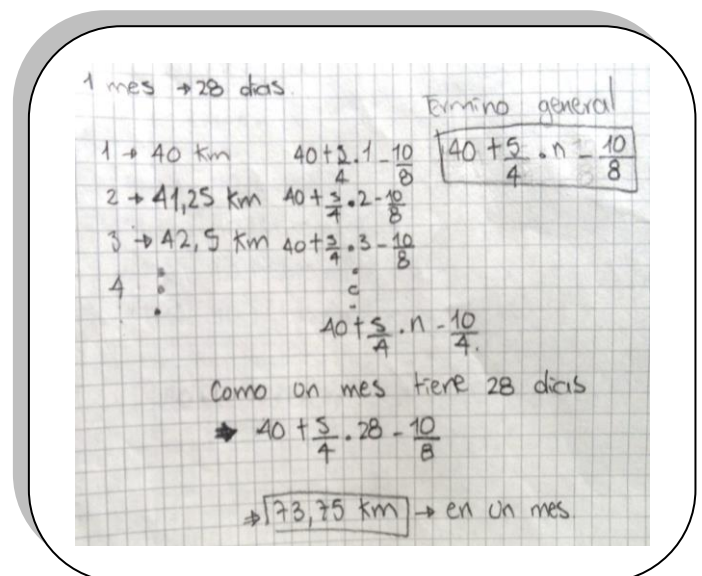 1 mes → 28 dias.
Termino general
40 + 5/4 . n - 10/8
1 → 40 km 40 + 5/4 . 1 - 10/8
2 → 41,25 km 40 + 5/4 . 2 - 10/8
3 → 42,5 km 40 + 5/4 . 3 - 10/8
4
40 + 5/4 . n - 10/4.
Como un mes tiene 28 dias
→ 40 + 5/4 . 28 - 10/8
⇒ 73,75 km → en un mes.